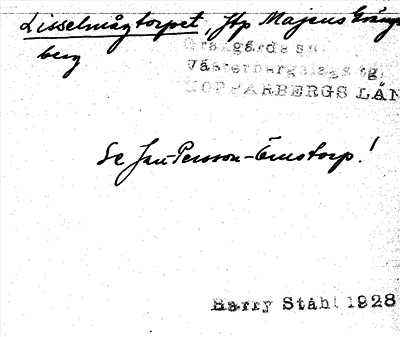 Lisselmågtorpet, ftp Majens Gränges
berg
Grangärde sn.
Västerbergslags tg.
KOPPARBERGS LÄN
Se Jan-Persson-Ernstorp!
Harry Ståhl 1928